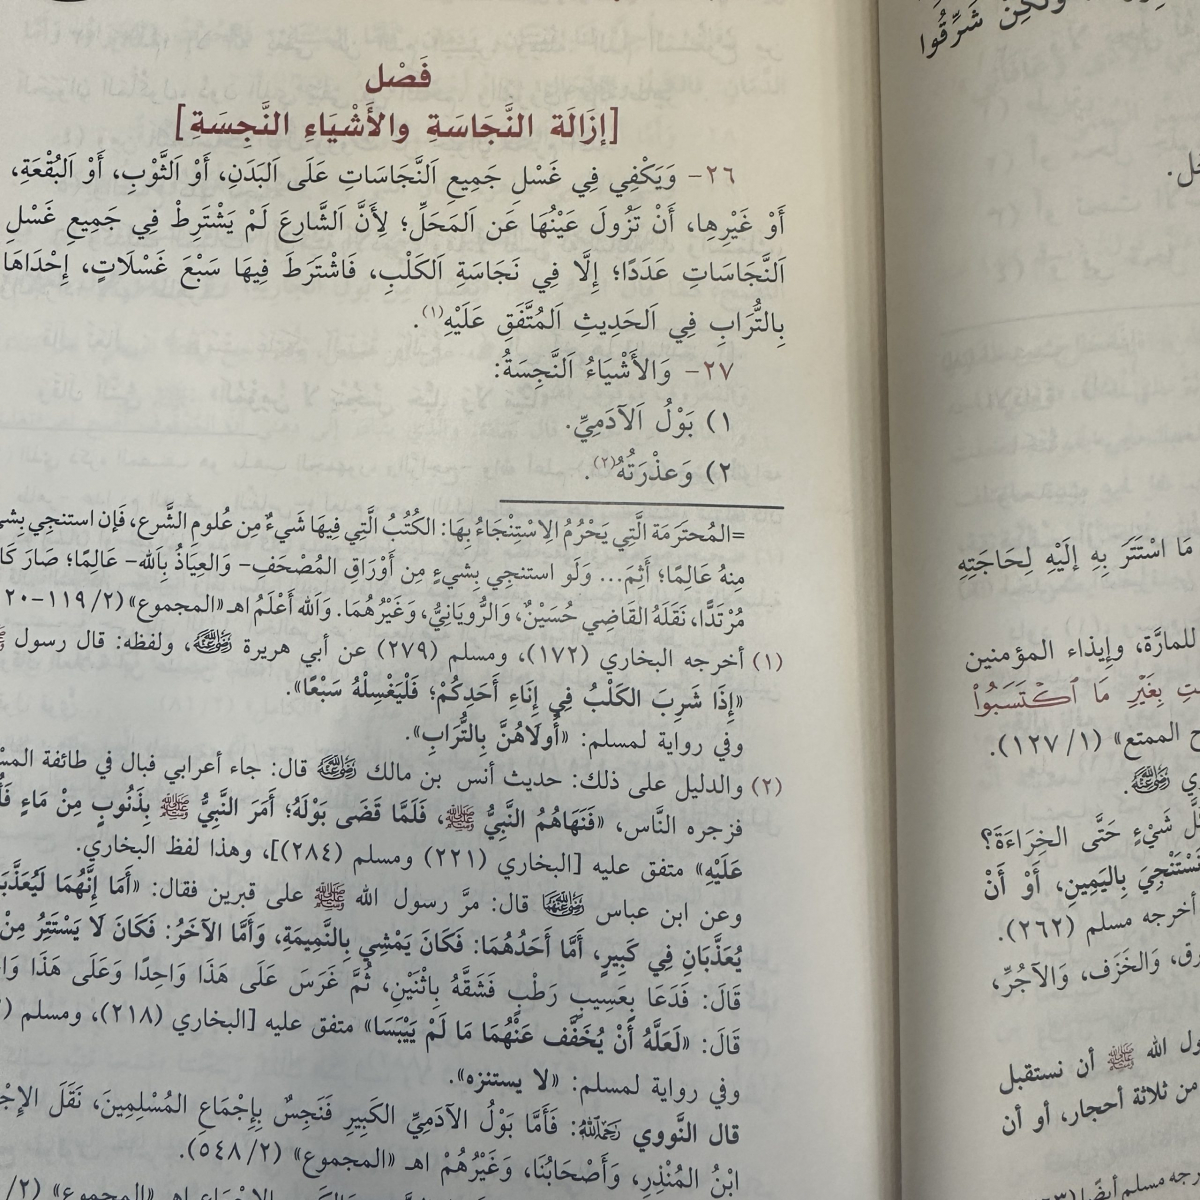 فَصْل
[إزَالَة النَّجَاسَةِ والأَشْيَاءِ النَّجِسَةِ]
٢٦- وَيَكْفِي فِي غَسْلِ جَمِيعِ اَلنَّجَاسَاتِ عَلَى اَلبَدَنِ، أَوْ اَلثَّوْبِ، أَوْ اَلبُقْعَةِ،
أَوْ غَيْرِها، أَنْ تَزُولَ عَيْنُهَا عَن اَلمَحَلِّ؛ لِأَنَّ اَلشَّارِعَ لَمْ يَشْتَرِطْ فِي جَمِيعِ غَسْلِ
اَلنَّجَاسَاتِ عَدَدًا؛ إِلَّا فِي نَجَاسَةِ اَلكَلْبِ، فَاشْتَرَطَ فِيهَا سَبْعَ غَسْلَاتٍ، إِحْدَاهَا
بِالتُّرَابِ فِي اَلحَدِيثِ اَلمُتَّفَقِ عَلَيْهِ(١).
٢٧- وَالأَشْيَاءُ اَلنَّجِسَةُ:
١) بَوْلُ اَلآدَمِيِّ.
٢) وَعذْرَتُهُ(٢).
=المُحترَمَة الَّتِي يَحْرُمُ الِاسْتِنْجَاءُ بِهَا: الكُتُبُ الَّتِي فِيهَا شَيءٌ مِن عُلومِ الشَّرع، فَإن استنجي
مِنهُ عَالِمًا؛ أَثِمَ... وَلَو استنجِي بِشيءٍ مِن أَوْرَاقِ المُصْحَفِ- وَالعِيَاذُ بِاَلله- عَالِمًا؛ صَارَ
مُرْتَدًّا، نَقَلَهُ القَاضِي حُسَيْنٌ، وَالرُّويَانِيُّ، وَغَيْرُهُمَا. وَاَلله أَعْلَمُ اهـ «المجموع» (٢/ ١١٩-
(١) أخرجه البخاري (١٧٢)، ومسلم (٢٧٩) عن أبي هريرة رضي الله عنه، ولفظه: قال رسول
«إِذَا شَرِبَ الكَلْبُ فِي إِنَاءِ أَحَدِكُمْ؛ فَلْيَغْسِلْهُ سَبْعًا».
وفي رواية لمسلم: «أُولَاهُنَّ بِالتُّرَابِ».
(٢) والدليل على ذلك: حديث أنس بن مالك رضي الله عنه قال: جاء أعرابي فبال في طائفة
فزجره النَّاس، «فَنَهَاهُمُ النَّبِيُّ ﷺ، فَلَمَّا قَضَى بَوْلَهُ؛ أَمَرَ النَّبِيُّ ﷺ بِذَنُوبٍ مِنْ مَاءٍ
عَلَيْهِ» متفق عليه [البخاري (٢٢١) ومسلم (٢٨٤)]، وهذا لفظ البخاري.
وعن ابن عباس رضي الله عنهما قال: مرَّ رسول الله ﷺ على قبرين فقال: «أَمَا إِنَّهُمَا
يُعَذَّبَانِ فِي كَبِيرٍ، أَمَّا أَحَدُهُمَا: فَكَانَ يَمْشِي بِالنَّمِيمَةِ، وَأَمَّا الآخَرُ: فَكَانَ لَا يَسْتَتِرُ مِنْ
قَالَ: فَدَعَا بِعَسِيبٍ رَطْبٍ فَشَقَّهُ بِاثْنَيْنِ، ثُمَّ غَرَسَ عَلَى هَذَا وَاحِدًا وَعَلَى هَذَا
قَالَ: «لَعَلَّهُ أَنْ يُخَفَّف عَنْهُمَا مَا لَمْ يَيْبَسَا» متفق عليه [البخاري (٢١٨)، ومسلم
وفي رواية لمسلم: «لا يستنزه».
قال النَّووي رحمه الله: فَأَمَّا بَوْلُ الآدَمِيِّ الكَبِيرِ فَنَجِسٌ بِإِجْمَاعِ المُسْلِمِينَ، نَقَلَ
ابْنُ المُنْذِرِ، وَأَصْحَابُنَا، وَغَيْرُهُمْ اهـ «المجموع» (٢/ ٥٤٨).
وَلَكِنْ شَرِّقُوا
مَا اسْتَتَرَ بِهِ إِلَيْهِ لِحَاجَتِهِ
للمارَّة، وإيذاء المؤمنين
بِغَيْرِ مَا ٱكْتَسَبُوا۟
الممتع» (١/ ١٢٧).
شَيْءٍ حَتَّى الخِرَاءَةَ؟
نَسْتَنْجِيَ بِاليَمِينِ، أَوْ أَنْ
أخرجه مسلم (٢٦٢).
وَالخَزَف، وَالآجُرِّ،
الله ﷺ أن نستقبل
من ثلاثة أحجار، أو أن